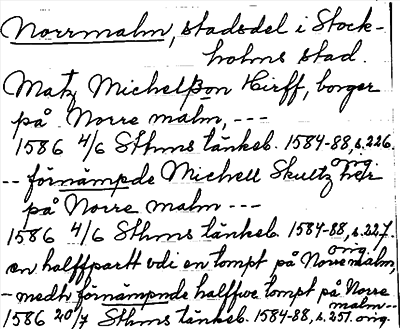 Norrmalm, stadsdel i Stock-
holms stad.
Matz Michelßon Hirff, borger
på Norre malm, ---
1586 4/6 Sthms tänkeb. 1584-88, s. 226.
orig.
-- förnämpde Michell Skultz
på Norre malm ---
1586 4/6 Sthms tänkeb. 1584-88, s. 227.
orig.
en halffpartt vdi en tompt på Norre malm,
- medh förnämpnde halffwe tompt på Norre
malm --
1586 20/7 Sthms tänkeb. 1584-88, s. 257. orig.